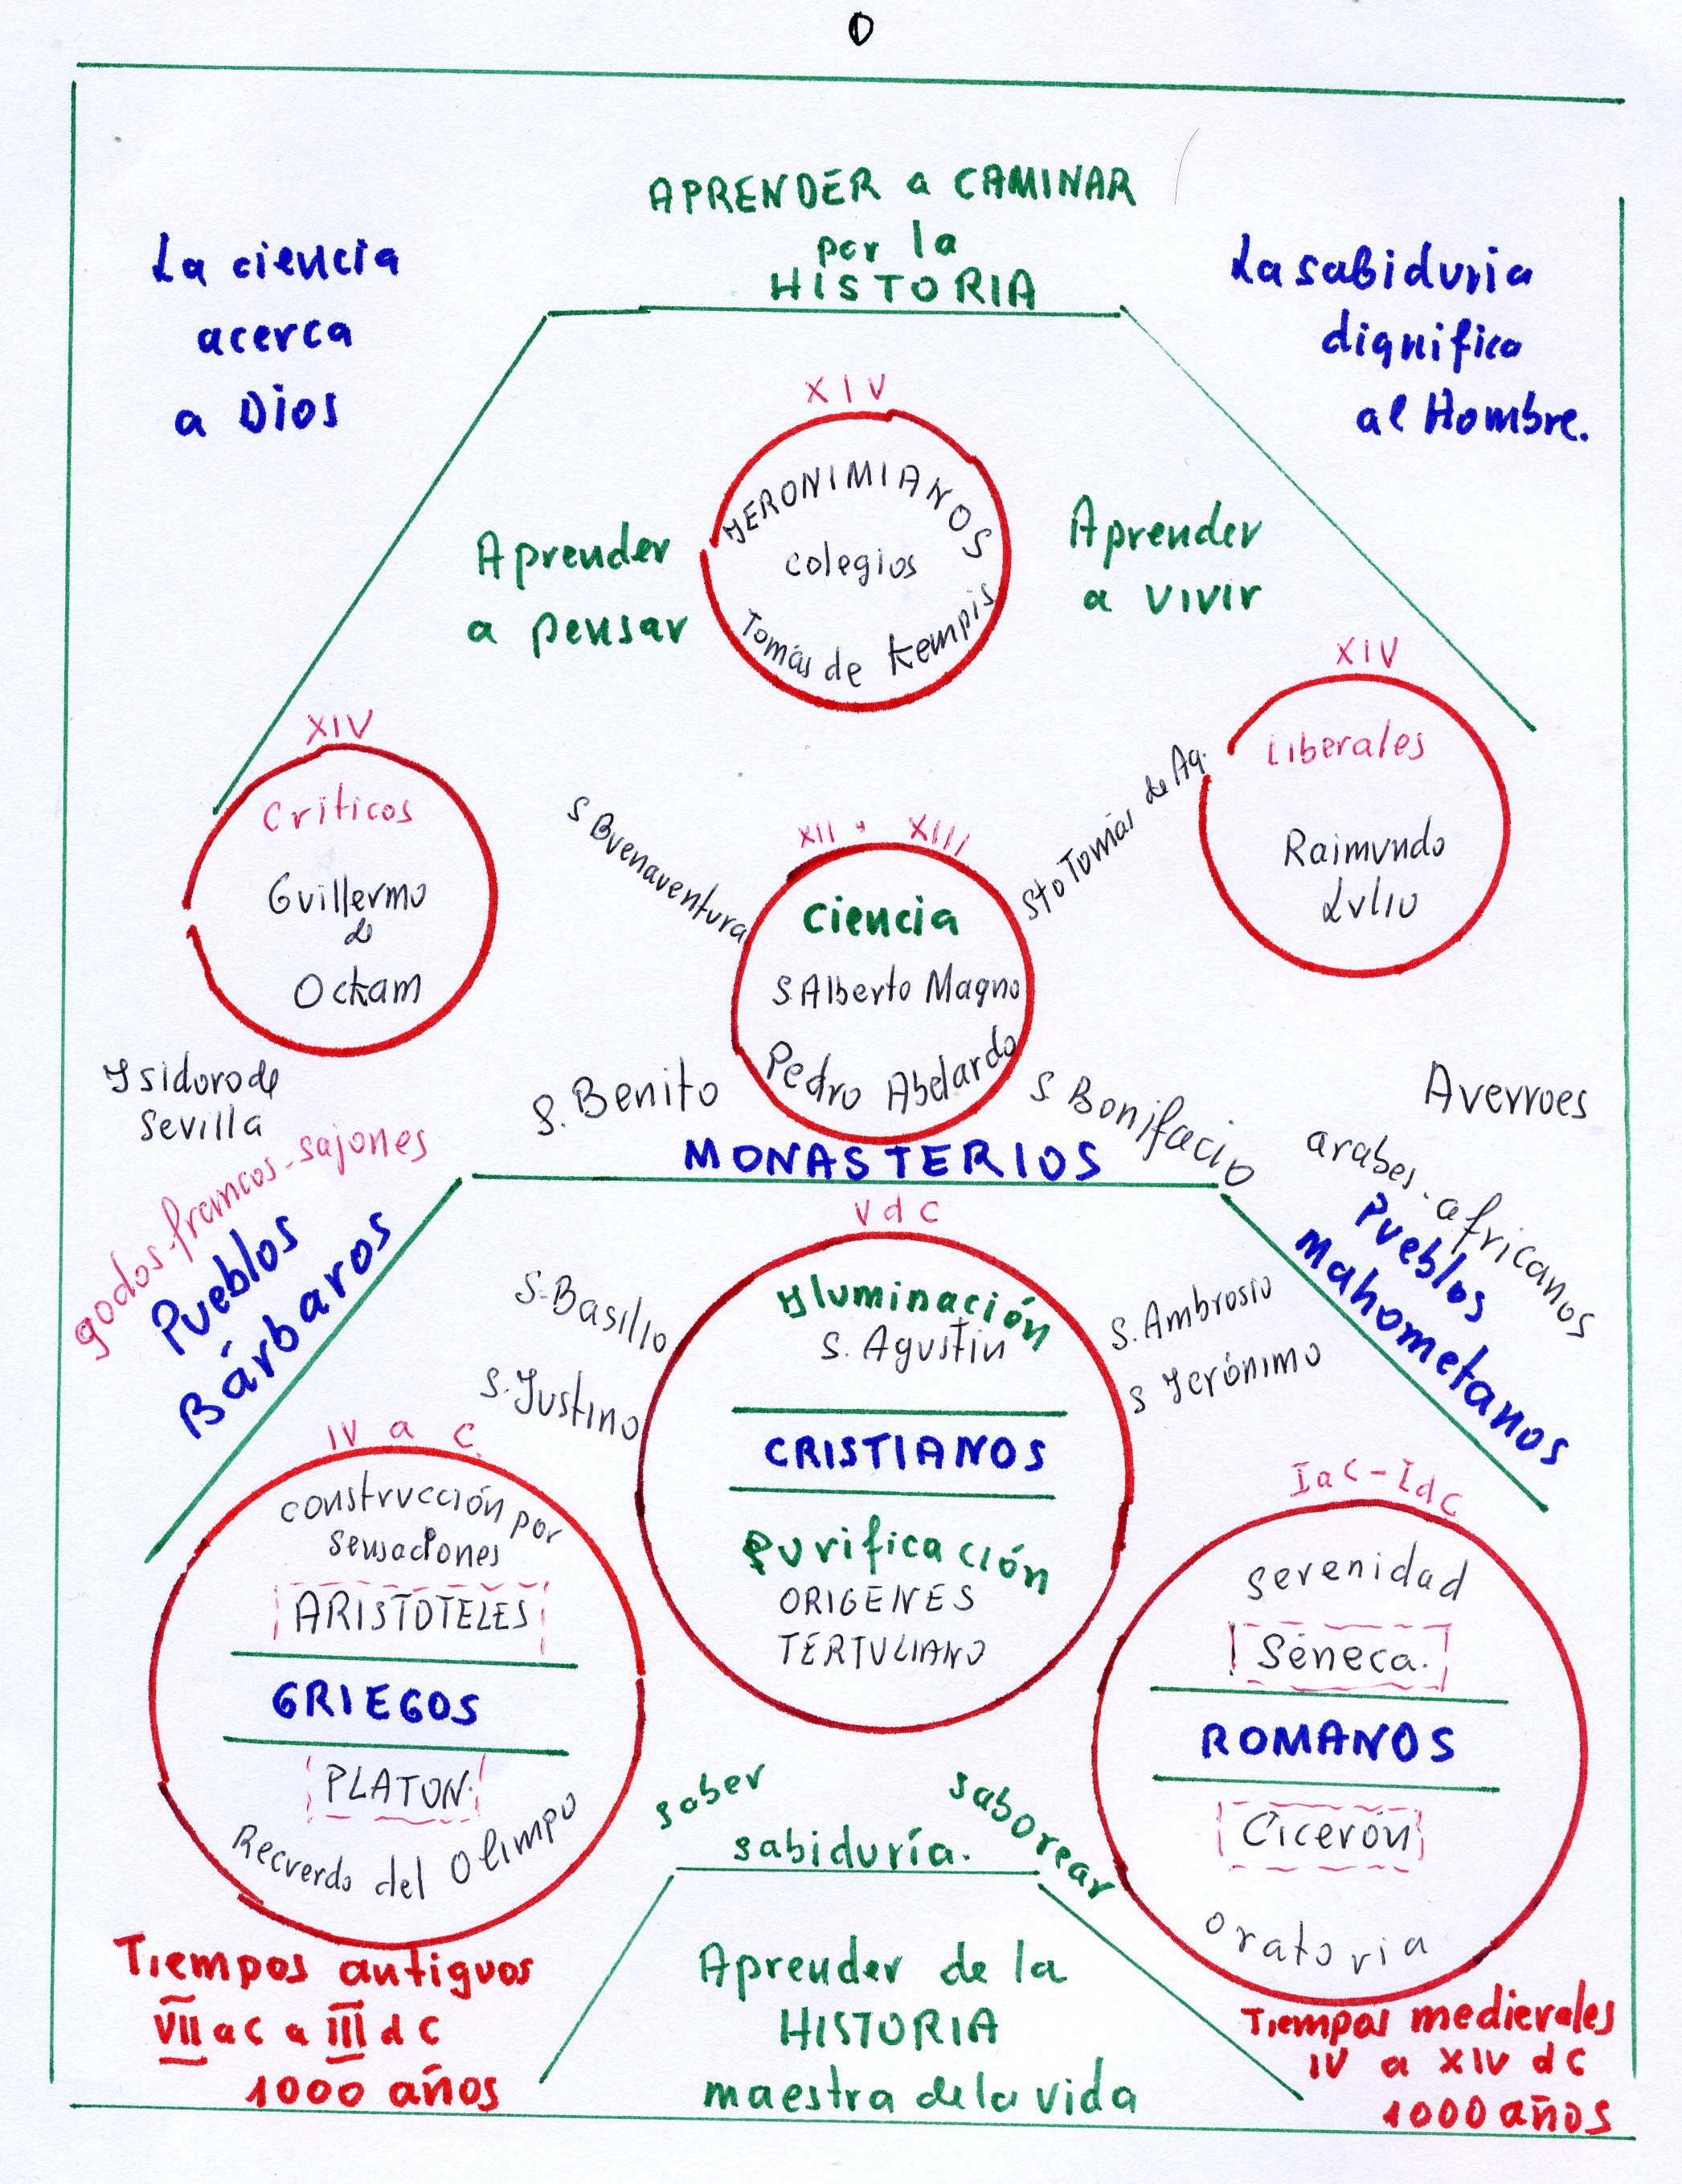 0
APRENDER a CAMINAR
por la
HISTORIA
La ciencia
acerca
a Dios
La sabiduria
dignifica
al Hombre.
XIV
JERONIMIANOS
colegios
Tomás de Kempis
Aprender
a pensar
Aprender
a vivir
XIV
Críticos
Guillermo
de
Ockam
XIV
Liberales
Raimundo
Lulio
S Buenaventura
Sto Tomás de Aq.
XII y XIII
Ciencia
S Alberto Magno
Pedro Abelardo
Isidoro de
Sevilla
S. Benito
S Bonifacio
Averroes
MONASTERIOS
godos-francos-sajones
Pueblos
Bárbaros
arabes-africanos
Pueblos
Mahometanos
V d C
Iluminación
S. Agustín
CRISTIANOS
Purificación
ORIGENES
TERTULIANO
S. Basilio
S. Justino
S. Ambrosio
S Jerónimo
IV a C.
construcción por
sensaciones
ARISTOTELES
GRIEGOS
PLATON.
Recuerdo del Olimpo
I a C - I d C
serenidad
Séneca.
ROMANOS
Cicerón
oratoria
saber
saborear
sabiduría.
Aprender de la
HISTORIA
maestra de la vida
Tiempos antiguos
VII a C a III d C
1000 años
Tiempos medievales
IV a XIV d C
1000 años